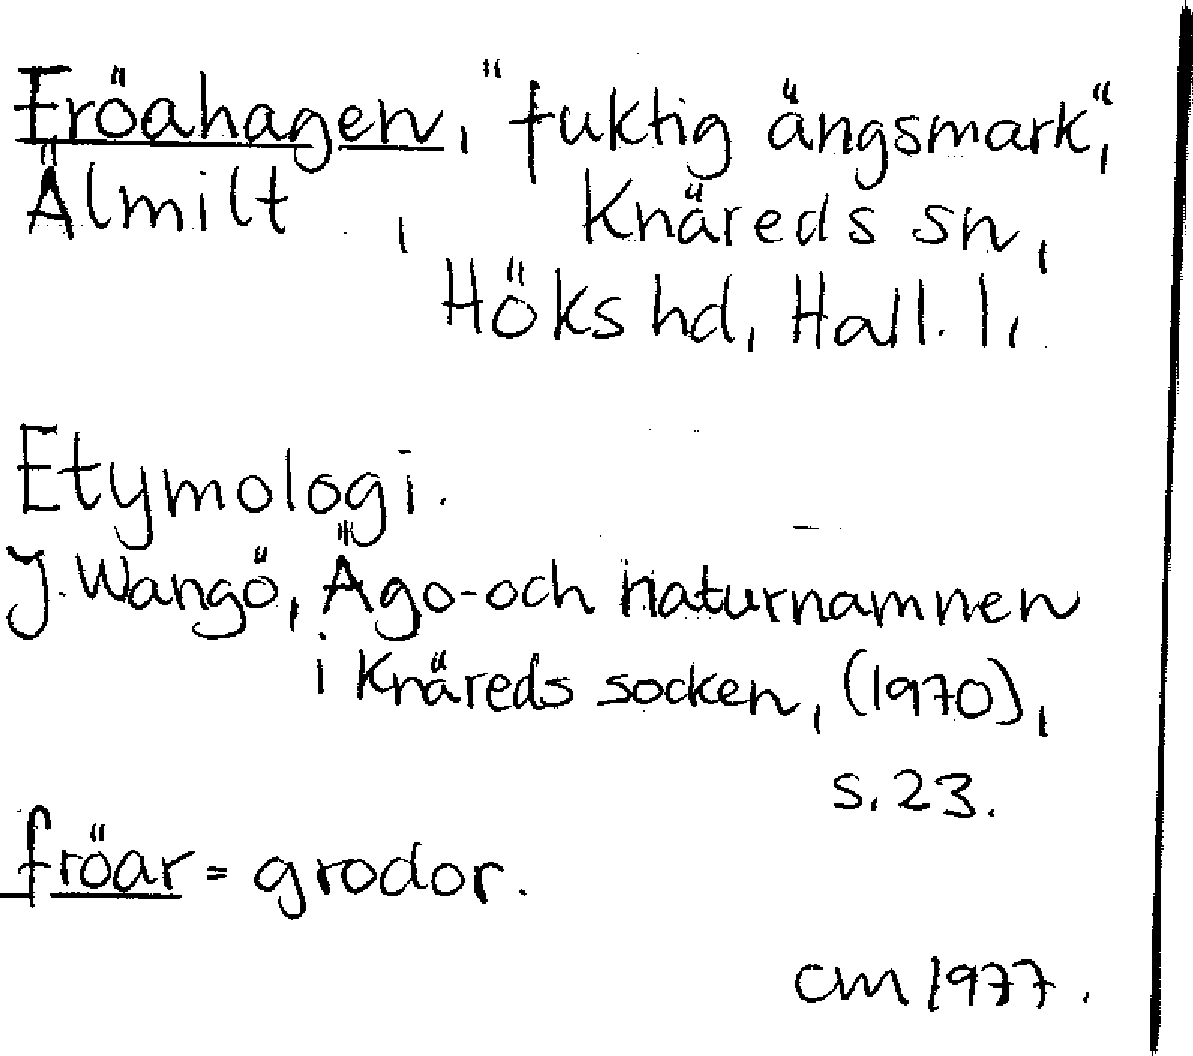 Fröahagen, "fuktig ängsmark",
Älmilt , Knäreds sn,
Höks hd, Hall. l.
Etymologi.
J. Wangö, Ägo- och naturnamnen
i Knäreds socken, (1970),
s. 23.
fröar = grodor.
CM 1977.